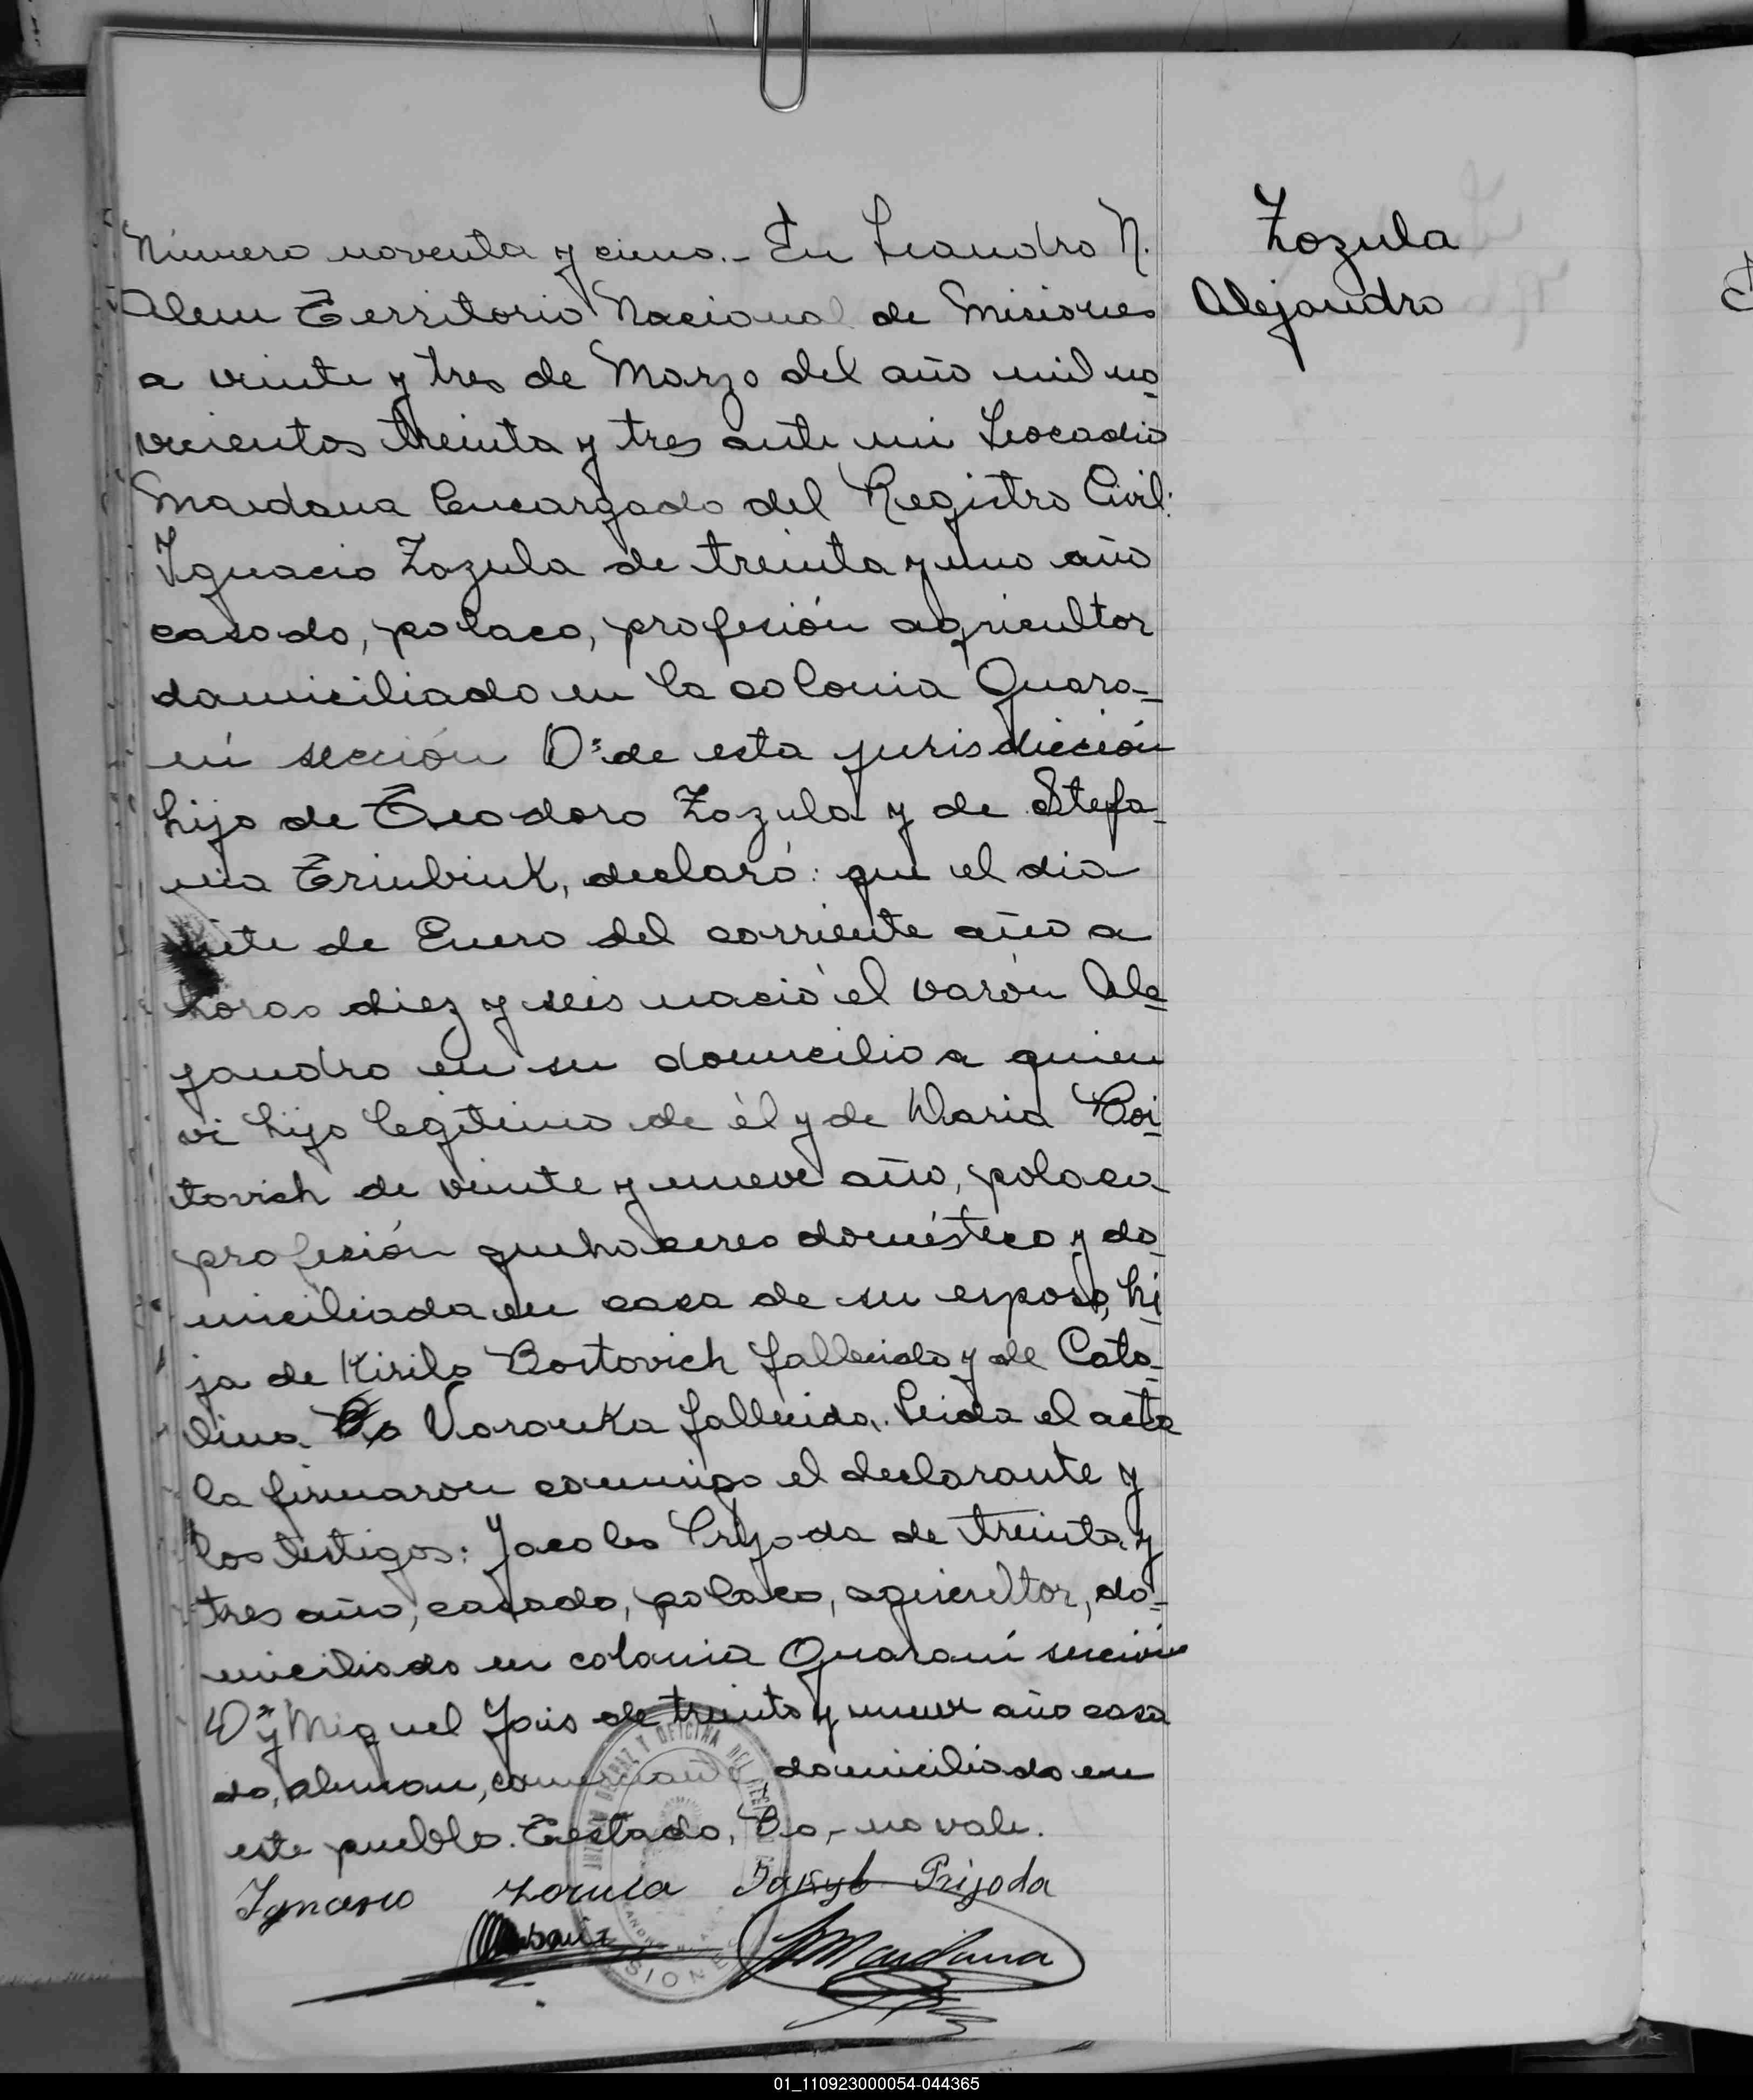 Número noventa y cinco.- En Leandro N.
Alem Territorio Nacional de Misiones
a veinte y tres de Marzo del año mil no-
vecientos treinta y tres ante mi Leocadio
Maidana Encargado del Registro Civil:
Ygnacio Zozula de treinta y uno año
casado, polaco, profesión agricultor
domiciliado en la colonia Guara-
ní sección Dª de esta jurisdicción
hijo de Teodoro Zozula y de Stefa-
nia declaró: que el dia
siete de Enero del corriente año a
horas diez y seis nació el varón Ale-
jandro en su domicilio a quien
vi hijo legítimo de él y de Maria Boi-
tovich de veinte y nueve año, polaca
profesión quehaceres doméstico y do-
miciliada en casa de su esposo, hi-
ja de Kirilo Boitovich fallecido y de Cata-
lina Bo Voronka fallecida. Leida el acta
la firmaron conmigo el declarante y
los testigos: Jacobo Prijoda de treinta y
tres año, casado, polaco, agricultor, do-
miciliado en colonia Guaraní sección
Dª y Miguel de treinta y nueve año casa
do, aleman, comerciante domiciliado en
este pueblo. Testado, Bo,- no vale.
Ignacio Zozula Prijoda
Maidana
Zozula
Alejandro
DE PAZ Y OFICINA DEL
MISIONES
01_110923000054-044365